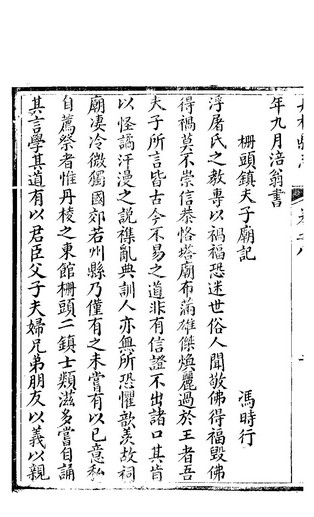 年九月涪翁書
柵頭鎮夫子廟記
馮時行
浮屠氏之教專以禍福恐迷世俗人聞敬佛得福毀佛
得禍莫不崇信恭恪塔廟布滿雄傑煥麗過於王者吾
夫子所言皆古今不易之道非有信證不出諸口其肯
以怪譎汗漫之說襍亂典訓人亦無所恐懼歆羨故祠
廟凄冷微獨國郊若州縣乃僅有之未嘗有以已意私
自薦祭者惟丹棱之東館柵頭二鎮士類滋多嘗自誦
其言學其道有以君臣父子夫婦兄弟朋友以義以親